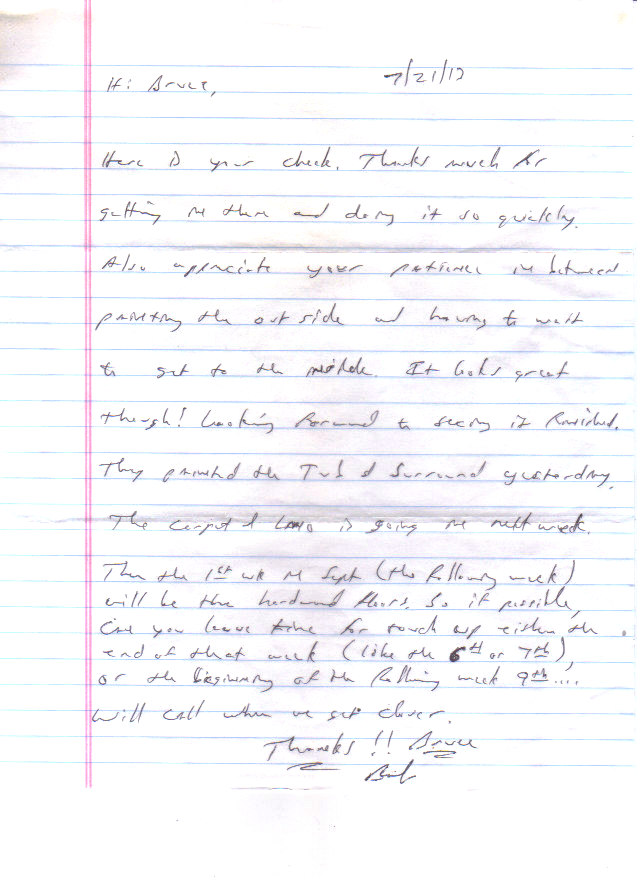 Hi Bruce,
7/21/13
Here is your check. Thanks much for
getting in there and doing it so quickly.
Also appreciate your patience in between
painting the out side and having to wait
to get to the middle. It looks great
though! Looking forward to seeing it finished.
They painted the Tub & Surround yesterday.
The carpet & Lino is going in next week.
Then the 1st wk in Sept (the following week)
will be the hardwood floors. So if possible,
Can you leave time for touch up either the
end of that week (like the 6th or 7th),
or the beginning of the following week 9th....
Will call when we get closer.
Thanks!! Bruce